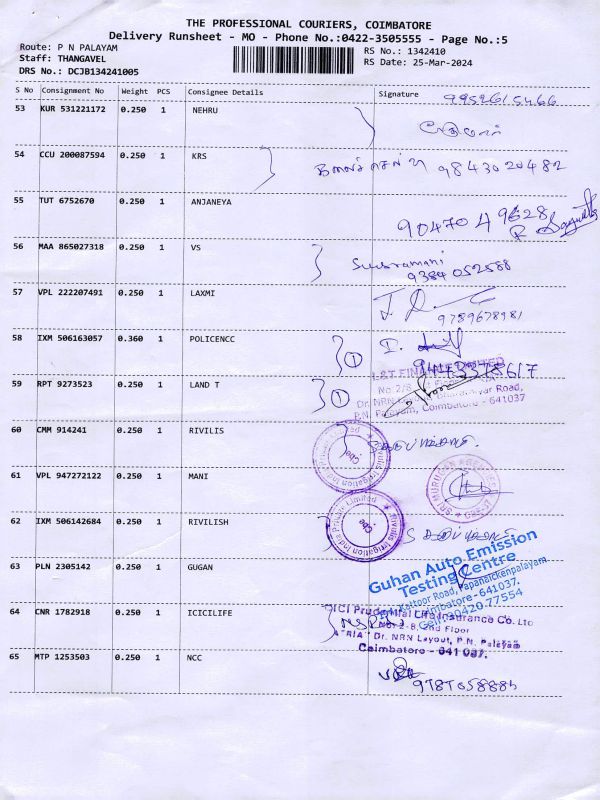 THE PROFESSIONAL COURIERS, COIMBATORE
Delivery Runsheet - MO - Phone No.:0422-3505555 - Page No.:5
Route: P N PALAYAM
RS No.: 1342410
Staff: THANGAVEL
RS Date: 25-Mar-2024
DRS No.: DCJB134241005
S No Consignment No Weight PCS Consignee Details Signature
9952615466
53 KUR 531221172 0.250 1 NEHRU
54 CCU 200087594 0.250 1 KRS
9843020482
55 TUT 6752670 0.250 1 ANJANEYA
90470 49628
56 MAA 865027318 0.250 1 VS
Subramani
9384052588
57 VPL 222207491 0.250 1 LAXMI
9789678981
58 IXM 506163057 0.360 1 POLICENCC
1
59 RPT 9273523 0.250 1 LAND T
1
L&T FINANCE LIMITED
Road,
P.N. Palayam, Coimbatore - 641037
60 CMM 914241 0.250 1 RIVILIS
Rivulis Irrigation India Private Limited
Cbe
61 VPL 947272122 0.250 1 MANI
SRI MURUGAN
62 IXM 506142684 0.250 1 RIVILISH
Rivulis Irrigation India Private Limited
Cbe.
63 PLN 2305142 0.250 1 GUGAN
Guhan Auto Emission
Testing Centre
Kattoor Road, Papanaickenpalayam
Coimbatore - 641037.
Cell: 90420-77554
64 CNR 1782918 0.250 1 ICICILIFE
ICICI Prudential Life Insurance Co. Ltd
No: 2-B, 2nd Floor
"RIA" Dr. NRN Layout, P.N. Palayam
Coimbatore - 641 037.
65 MTP 1253503 0.250 1 NCC